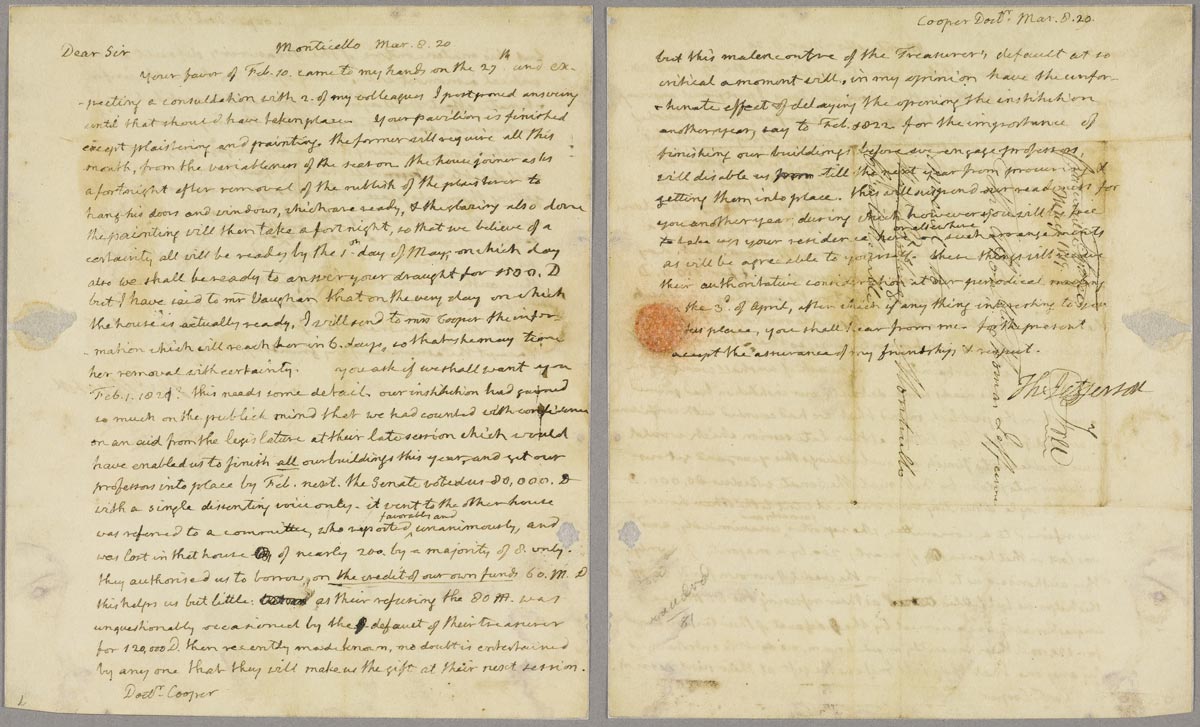 Monticello Mar. 8. 20
Dear Sir
Your favor of Feb. 10. came to my hands on the 27th and ex-
-pecting a consultation with 2. of my colleagues I postponed answering
until that should have taken place. Your pavilion is finished
except plaistering and painting. the former will require all this
month, from the variableness of the season. the house joiner asks
a fortnight after removal of the rubbish of the plaisterer to
hang his doors and windows, which are ready, & the glazing also done
the painting will then take a fortnight, so that we believe of a
certainty all will be ready by the 1st day of May, on which day
also we shall be ready to answer your draught for 1500. D
but I have said to mr Vaughan that on the very day on which
the house is actually ready, I will send to mrs Cooper the infor-
-mation which will reach her in 6. days, so that she may time
her removal with certainty. you ask if we shall want you
Feb. 1. 1821? this needs some detail. our institution had gained
so much on the publick mind that we had counted with confidence
on an aid from the legislature at their late session which would
have enabled us to finish all our buildings this year, and get our
professors into place by Feb. next. the Senate voted us 80,000. D
with a single dissenting voice only. it went to the other house
was referred to a committee, who reported favorably and unanimously, and
was lost in that house of nearly 200. by a majority of 8. only.
they authorised us to borrow, on the credit of our own funds 60. M. D
this helps us but little. as their refusing the 80 M. was
unquestionably occasioned by the default of their treasurer
for 120,000 D. then recently made known, no doubt is entertained
by any one that they will make us the gift at their next session.
Doctr. Cooper
Cooper Doctr. Mar. 8. 20.
but this malencontre of the Treasurer's default at so
critical a moment will, in my opinion have the unfor-
-tunate effect of delaying the opening the institution
another year, say to Feb. 1822. for the importance of
finishing our buildings before we engage professors,
will disable us from till the next year from procuring &
getting them into place. this will suspend our readiness for
you another year, during which however you will be free
to take up your residence here or elsewhere on such arrangements
as will be agreeable to yourself. these things will receive
their authoritative consideration at our periodical meeting
on the 3d of April, after which if any thing interesting to you
takes place, you shall hear from me. for the present
accept the assurance of my friendship & respect.
Th: Jefferson
Thomas Jefferson
Monticello